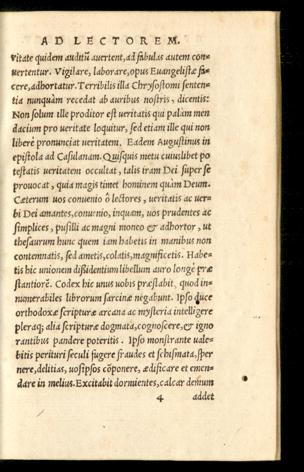 AD LECTOREM.
vitate quidem auditũ auertent, ad fabulas autem con-
uertentur. Vigilare, laborare, opus Euangelistæ fa-
cere, adhortatur. Terribilis illa Chrysostomi senten-
tia nunquàm recedat ab auribus nostris, dicentis:
Non solùm ille proditor est ueritatis qui palàm men
dacium pro ueritate loquitur, sed etiam ille qui non
liberè pronunciat ueritatem. Eadem Augustinus in
epistola ad Casulanam. Quisquis metu cuiuslibet po
testatis ueritatem occultat, talis iram Dei super se
prouocat, quia magis timet hominem quàm Deum.
Cæterum uos conuenio ô lectores, ueritatis ac uer-
bi Dei amantes, conuenio, inquam, uos prudentes ac
simplices, pusilli ac magni moneo & adhortor, ut
thesaurum hunc quem iam habetis in manibus non
contemnatis, sed ametis, colatis, magnificetis. Habe-
tis hic unionem dissidentium libellum auro longè præ
stantiorē. Codex hic unus uobis præstabit, quod in-
numerabiles librorum sarcinæ negabunt. Ipso duce
orthodoxæ scripturæ arcana ac mysteria intelligere
pleraq; alia scripturæ dogmata, cognoscere, & igno
rantibus pandere poteritis. Ipso monstrante uale-
bitis perituri seculi fugere fraudes et schismata, sper
nere, delitias, uosipsos cōponere, ædificare et emen-
dare in melius. Excitabit dormientes, calcar demum
4 addet